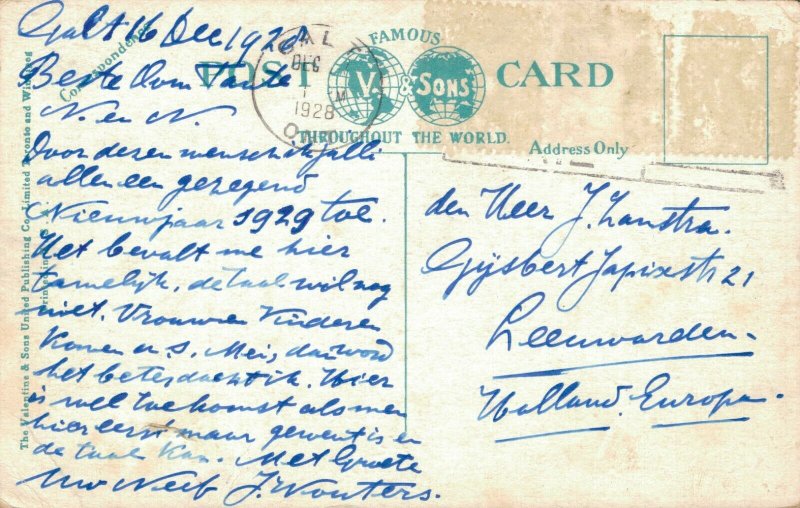 Galt 16 Dec 1928
Beste Oom Tante
N. en N.
Door dezen wensch ik jullie
allen een gezegend
Nieuwjaar 1929 toe.
Het bevalt me hier
tamelijk, de taal wil nog
niet. Vrouw en Kinderen
komen in Mei, dan word
het beter dacht ik. Hier
is wel toekomst als men
hier eerst maar gewent is en
de taal kan. Met Groete
Uw Neef J. Wouters.
Correspondence
The Valentine & Sons United Publishing Co. Limited Toronto and Winnipeg
Printed in
FAMOUS
POST CARD
V. & SONS
THROUGHOUT THE WORLD.
Address Only
GALT
DEC
1
M
1928
ONT
den Heer J. Lanstra.
Gijsbert Japixstr 21
Leeuwarden.
Holland. Europa.